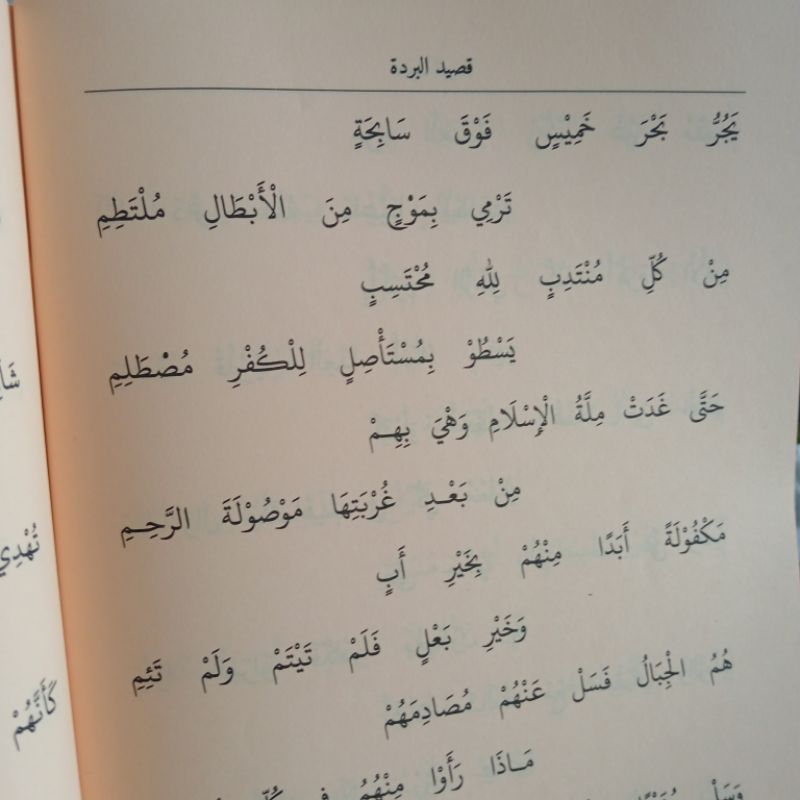 قصيد البردة
يَجُرُّ بَحْرَ خَمِيْسٍ فَوْقَ سَابِحَةٍ
تَرْمِي بِمَوْجٍ مِنَ الْأَبْطَالِ مُلْتَطِمِ
مِنْ كُلِّ مُنْتَدِبٍ لِلهِ مُحْتَسِبٍ
يَسْطُوْ بِمُسْتَأْصِلٍ لِلْكُفْرِ مُصْطَلِمِ
حَتَّى غَدَتْ مِلَّةُ الْإِسْلَامِ وَهْيَ بِهِمْ
مِنْ بَعْدِ غُرْبَتِهَا مَوْصُوْلَةَ الرَّحِمِ
مَكْفُوْلَةً أَبَدًا مِنْهُمْ بِخَيْرِ أَبٍ
وَخَيْرِ بَعْلٍ فَلَمْ تَيْتَمْ وَلَمْ تَئِمِ
هُمُ الْجِبَالُ فَسَلْ عَنْهُمْ مُصَادِمَهُمْ
مَاذَا رَأَوْا مِنْهُمُ فِي كُلِّ
وَسَلْ
تُهْدِي
كَأَنَّهُمْ